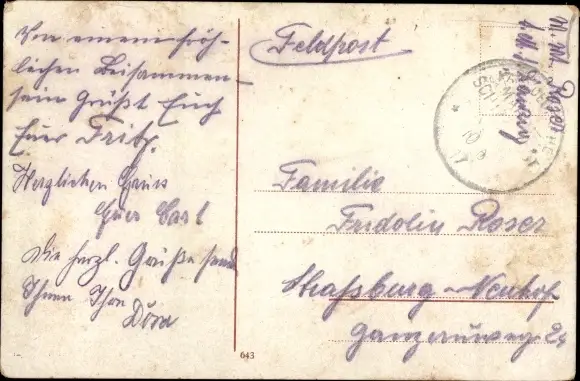 Von einem fröh-
lichen Beisammen-
sein grüßt Euch
Euer Fritz.
Herzlichen Gruss
Euer Carl
Die herzl. Grüße sendet
Ihnen Ihre
Dora
Feldpost
Familie
Fridolin Roser
Straßburg-Neuhof
643